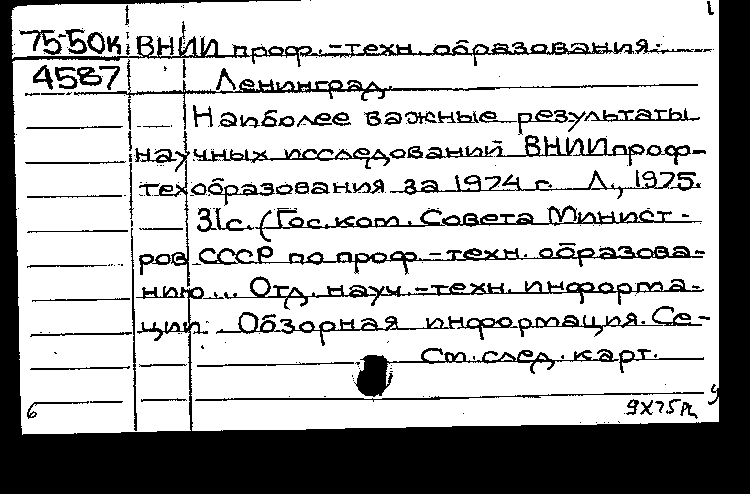 1
75-50к ВНИИ проф.-техн. образования.
4587 Ленинград.
Наиболее важные результаты
научных исследований ВНИИпроф-
техобразования за 1974 г. Л., 1975.
31с. (Гос. ком. Совета Минист-
ров СССР по проф.-техн. образова-
нию... Отд. науч.-техн. информа-
ции. Обзорная информация. Се-
См. след. карт.
6